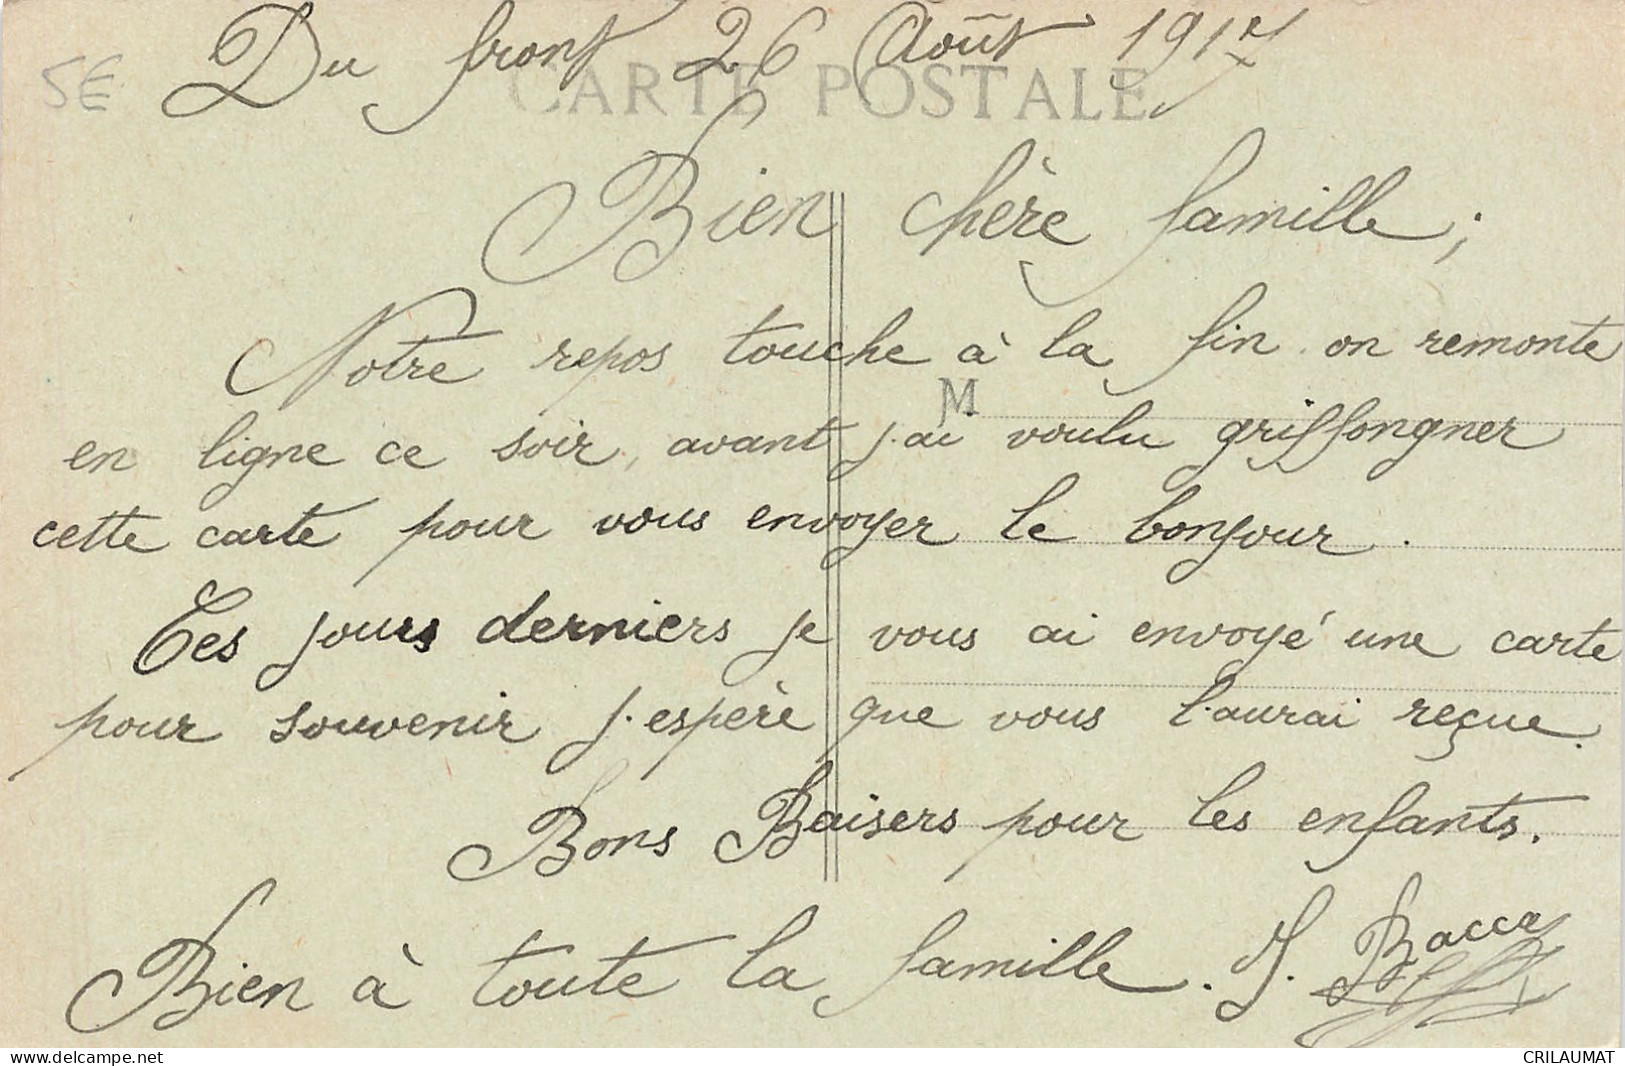 5€
Du front 26 Août 1917
CARTE POSTALE
Bien chère famille;
Notre repos touche à la fin. on remonte
M
en ligne ce soir, avant j.ai voulu griffongner
cette carte pour vous envoyer le bonjour.
Ces jours derniers je vous ai envoyé une carte
pour souvenir j.espère que vous l.aurai reçue.
Bons Baisers pour les enfants.
Bien à toute la famille. J. Bacca
delcampe.net
CRILAUMAT